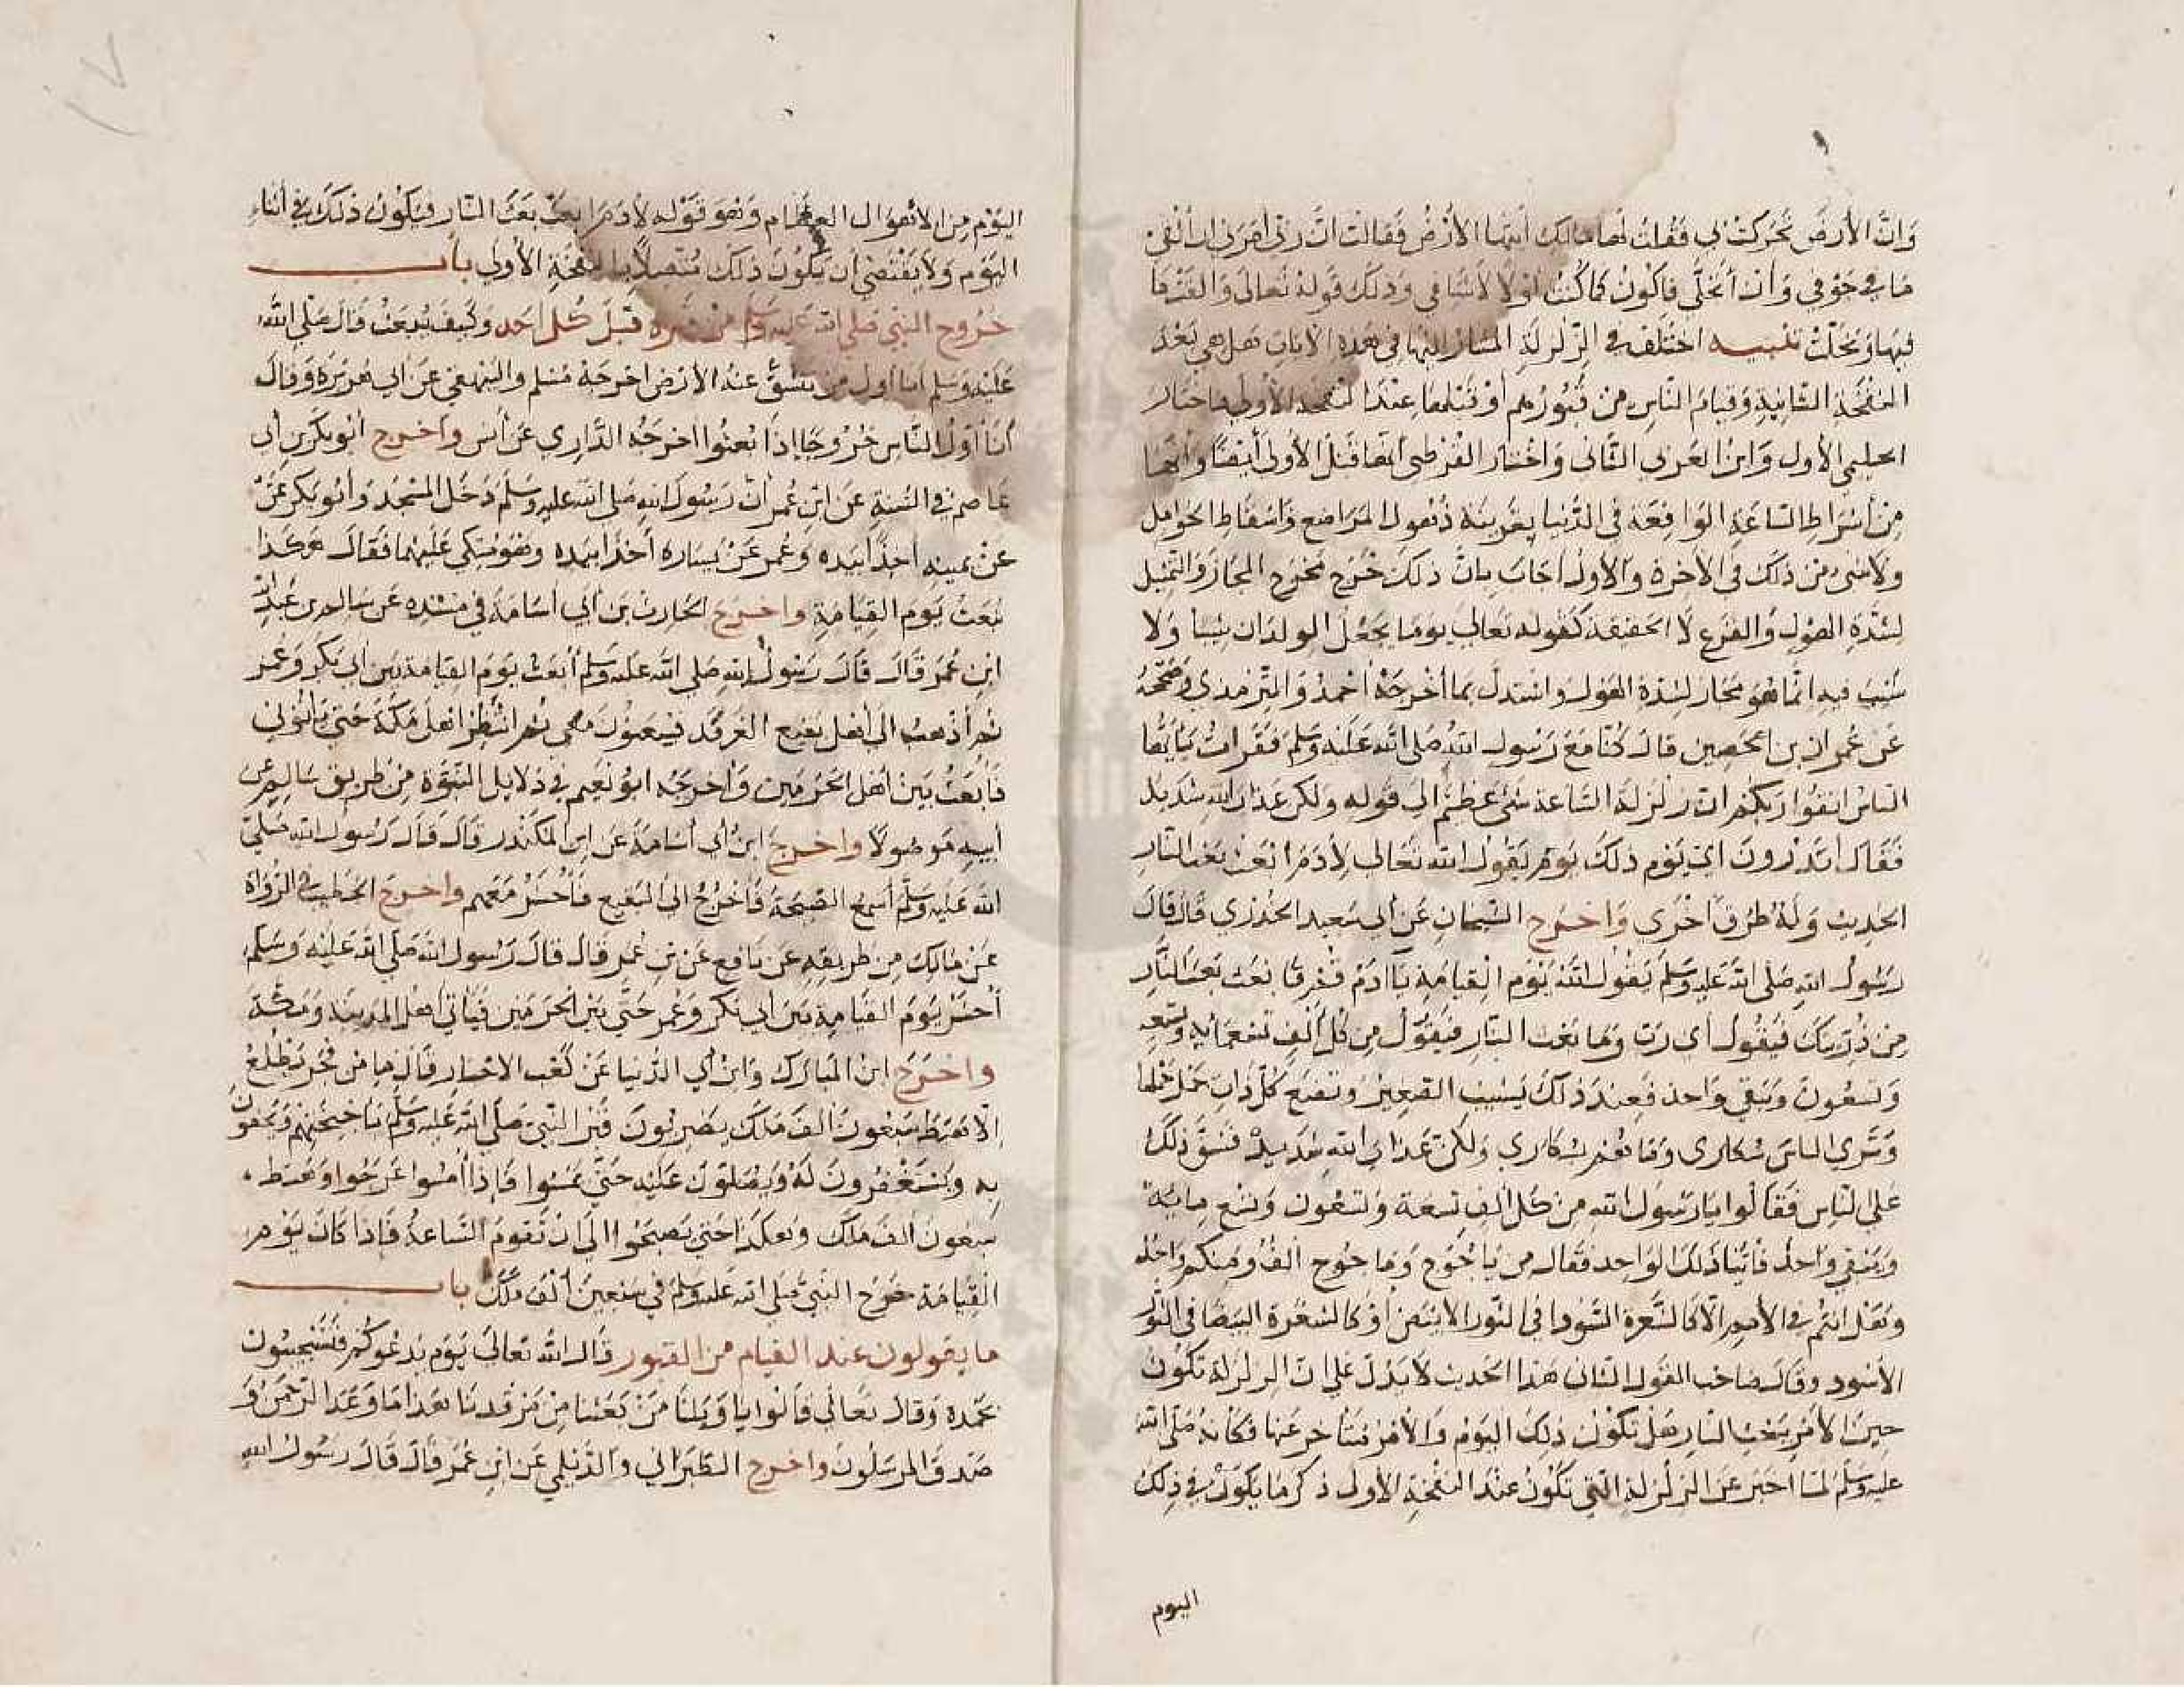 وَانَّ الأرضَ تحَركَت بي فقُلت لها مالك أيتها الأرضُ فقالت انَّ ربي أمرني ان ألقي
مَا في جَوْفي وَأن اتخلى فاكون كما كُنت اوّلا لا شيا في وَذلك قوله تعالى وَالقت ما
فيهَا وَتخلت تنبيه اختلف في الزلزلة المشار اليها في هذه الايات هل هي بَعْدَ
النفخة الثانية وَقيام الناس من قبُورهم أو قبلها عند النفخة الأولى فاختار
الحليمي الأول وَابن العربي الثاني وَاختار القرطبي أنها قبل الأولى أيضًا وَأنها
من أشراط الساعة الواقعة في الدُّنيا بقرينة ذهول المراضع وَاسقاط الحوامل
ولا شيء من ذلك في الآخرة والاول أجاب بأن ذلك خرج مخرج المجاز وَالتمثيل
لشدة الهول وَالفزع لا الحقيقة كقوله تعالى يوما يجعل الولدان شيبا وَلا
شيب فيه انما هو مجاز لشدة الهول واستدل بما أخرجه أحمد وَالترمذي وصححه
عَن عُمران بن الحصين قال كنا مَعَ رَسول الله صَلى الله عَليه وسَلم فقرأت يَا أيها
الناسُ اتقوا ربكم ان زلزلة السَّاعة شئ عظيم الى قوله ولكن عذاب الله شديد
فقال أتدرون اي يَوم ذلك يوم يَقول الله تعالى لأدم ابعث بعث النار
الحديث وله طرق أخرى وَاخرج الشيخان عَن أبي سَعيد الخدري قال قال
رَسُول الله صلى الله عَليه وسَلم يَقول الله يَوم القيامة يَا آدم قم فابعث بعث النار
من ذريتك فيَقول أي رَب وَما بَعث النار فيَقول من كل ألف تسعمائة وتسعة
وَتسعُون وَيَبقى وَاحد فعند ذلك يَشيب الصغير وتضع كل ذات حَمل حملها
وَترى الناسَ سُكارى وَمَا هُم بسكارى وَلكن عذاب الله شديد فشق ذلك
عَلى الناس فقالوا يا رسول الله من كل ألف تسعة وَتسعُون وَتسع مايه
وَيَبقى وَاحد فاتينا ذلك الوَاحد فقال من يَاجُوج وَمَاجُوج ألفُ وَمنكم وَاحد
وَهَل انتم في الأمم الا كالشعرة السَّودا في الثور الابيَض أو كالشعرة البيضا في الثور
الأسود وقال صَاحب القول الثاني هَذا الحديث لا يَدل على ان الزلزلة تكون
حين الأمر ببعث النار هَل تكون ذلك اليَوم وَالأمر متأخر عَنها فكانه صَلى الله
عليه وسلم لما أخبر عَن الزلزلة التي تكون عند النفخة الأولى ذكر مَا يَكون في ذلك
اليوم
١٧
اليَوْم من الأهوَال العظام وَهوَ قوله لأدم ابعث بعَث النار فيكون ذلك في أثناء
اليَوم وَلا يَقتضي أن يكون ذلك متصلا بالنفخة الأولى بَاب
خروج النبي صَلى الله عليه وسلم من قبره قبل كل أحد وَكيف يُبعث قال صَلى الله
عَليه وسَلم أنا أول من تنشق عنه الأرض أخرجَه مسلم والبيهقي عَن أبي هريرة وَقال
أنا أول الناس خُرُوجا إذا بُعثوا اخرجه الدَّارمي عَن أنس وَأخرج أبو بكر بن أبي
عَاصم في السُّنة عَن ابن عُمر أن رَسُول الله صَلى الله عليه وسَلم دَخل المسجد وَأبو بكر عَن
عَن يمينه اخذا بيَده وَعُمر عَن يَساره أخذا بيَده وَهو متكي عَليهما فقال هَكذا
نبعث يَوم القيامة وَاخرج الحارث بن أبي أسامة في مسنده عَن سالم بن عَبد الله
ابن عُمَر قال قال رَسُول الله صَلى الله عَليه وسلم أبعث يَوم القيامة بَين أبي بَكر وَعُمر
ثُم أذهب الى أهل بَقيع الغرقد فيبعثون معي ثم انتظر اهل مكة حَتى يأتوني
فأبعث بَين أهل الحرمين وَأخرجه ابو نعيم في دلايل النبوة من طريق سَالم عن
أبيه مَوصُولا واخرج ابن أبي أسامة عَن ابن المنكدر قال قال رَسول الله صَلى
الله عَليه وسَلم أسمع الصَّيحة فأخرج الى البقيع فأحشر مَعهم وَاخرج الخطيب في الرُّواة
عَن مَالك من طريقه عَن نافع عَن بن عمر قال قال رَسول الله صَلى الله عَليه وَسَلم
أحشر يَوم القيامة بَين أبي بَكر وَعُمر حَتى بَين الحرمَين فيَاتي اهل المدينة وَمَكة
واخرج ابن المبارك وَابن أبي الدُّنيا عَن كعب الأحبار قال ما من فجر يَطلع
إلا هَبَط سَبعُون ألف مَلك يَضربُون قبر النبي صَلى الله عَليه وسَلم بأجنحتهم وَيحفون
به وَيَستغفرون له وَيُصَلون عَليه حَتى يمسُوا فإذا أمسُوا عَرَجوا وَهبَط
سبعون ألف مَلك وَهكذا حتى يَصبحوا الى ان تقوم السَّاعة فإذا كان يَوم
القيامة خرج النبي صلى الله عليه وسلم في سَبعين ألف مَلك بَاب
ما يقولون عند القيام من القبور قال الله تعالى يَوم يَدعُوكم فتستجيبون
بحَمده وَقال تعالى قالوا يا وَيلنا مَن بَعثنا من مَرقدنا هَذا ما وَعَد الرَّحمن وَ
صَدق المرسَلون واخرج الطبراني والدَّيلمي عَن ابن عُمر قال قال رَسُول الله